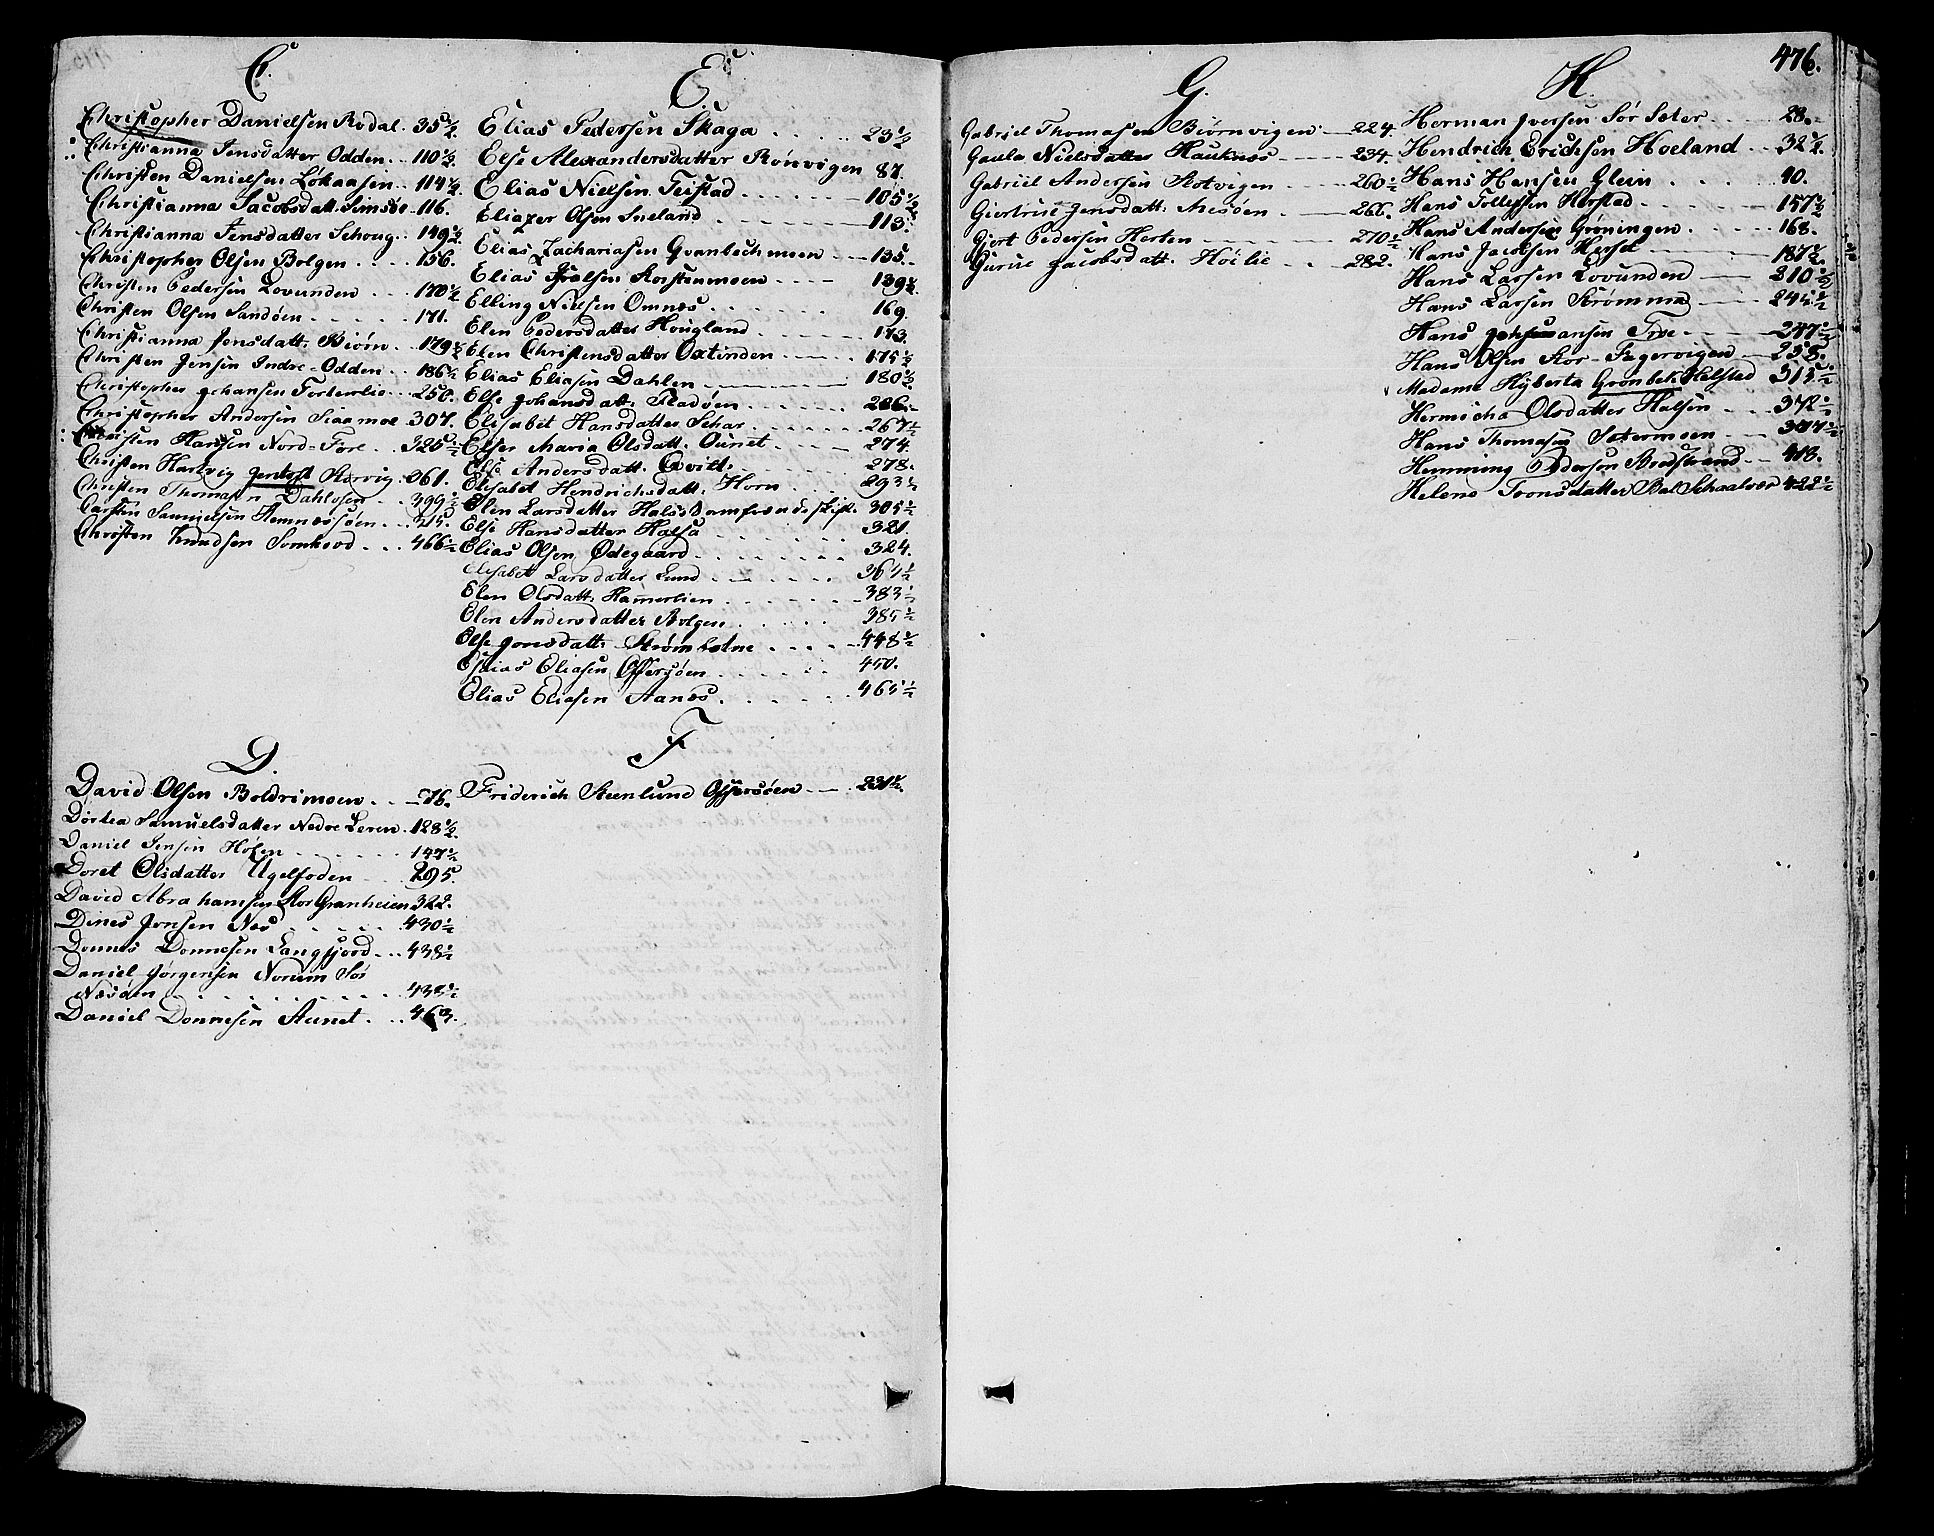 C.
Christopher Danielsen Rodal. 35½.
Christianna Jensdatter Odden. . . 110½.
Christen Danielsen Lokaasen . . 114½
Christianna Jacobsdatt. Simsøe 116.
Christianna Jensdatter Schoug . . 149½.
Christopher Olsen Bolgen . . . . 156.
Christen Pedersen Lovunden . . . 170½
Christen Olsen Sandøen . . . . . 171.
Christianna Jonsdatt: Biørn . . 179½
Christen Jensen Indre-Odden . . . 186½
Christopher Johansen Forterlie . . . 250.
Christopher Andersen Siaamoe 307.
Christen Hansen Nord-Fore . . 325½
Christen Hartvig Jentoft Rørvig . 361.
Christen Thomasen Dahlosen . . 399½
Carsten Samuelsen Hemnessøen . . . 315.
Christen Knudsen Somhovd . . . 466½
D.
David Olsen Boldrimoen . . . 76.
Dortea Samuelsdatter Nedre Leren . 128½.
Daniel Jensen Holen . . . . . 147½
Doret Olsdatter Ugelfoden . . . 295.
David Abrahamsen Stor Granheien 322.
Dines Jonsen Nes . . . . . 430½
Donnes Donnesen Langfjord . . . 438½
Daniel Jørgensen Norum Sør
Nesøen . . . . . . . . . 438½
Daniel Donnesen Aunet . . . 463.
E.
Elias Pedersen Skaga . . . . . 23½
Else Alexandersdatter Rønvigen 87.
Elias Nielsen Teistad . . . . . . 105½
Eliazer Olsen Sneland . . . . . . 113.
Elias Zachariasen Qvanbechmoen . . . 135.
Elias Joelsen Korstenmoen . . . . 139½.
Elling Nielsen Omnes . . . . . 169.
Elen Pedersdatter Hougland . . . . 173.
Elen Christensdatter Oxtinden . . . . 175½
Elias Eliasen Dahlen . . . . . 180½
Else Johansdatt: Fladøen . . . . . 206.
Elisabet Hansdatter Skar . . . . . 267½
Elser Maria Olsdatt: Ounet . . . 274.
Else Andersdatt. Qvitt: . . . . . 278.
Elisabet Hendrichsdatt: Horn . . . . 293½
Elen Larsdatter 305½
Else Hansdatter Halsa . . . . . . 321.
Elias Olsen Ødegaard . . . . . . . 324.
Elisabet Larsdatter Lund . . . . . . 361½
Elen Olsdatt: Hamerlien . . . . . . 383½
Elen Andersdatter Bolgen . . . . . . 385½
Else Jonsdatt: Strømholme . . . . . 448½
Elias Eliasen Offersøen . . . . . . 450.
Elias Eliesen Aanes . . . . . . 465½
F
Friderich Steenlund Offersøen . . . 231½.
476.
G.
Gabriel Thomasen Biørnvigen . . 224.
Gaula Nielsdatter Hauknes . . . . 234.
Gabriel Andersen Stotvigen . . . . 260½
Giertrue Jensdatt: Alesøen . . . . 266.
Gjert Pedersen Herten . . . . 270½
Gurue Jacobsdatt. Høilie . . . 282.
H.
Herman Iversen Sør Sæter . . . . . 28.
Hendrich Erichsen Hoeland . . 32½.
Hans Hansen Glein . . . . 40.
Hans Tollefsen Herstad . . . . . 157½
Hans Andersen Grøningen . . . . . 168.
Hans Jacobsen Herset . . . . . 187½.
Hans Larsen Lovunden . . . 210½
Hans Larsen Strømmæ . . . 245½
Hans Johansen Troe . . . . 247½
Hans Olsen Stor-Fugervigen . . 255.
Madame Hyberta Grønbek Helstad 315½
Hermicha Olsdatter Halsen . . . . 372½
Hans Thomasen Setermoen . . . 377½
Hemming Pedersen Bredstrand . . 413.
Helene Toonsdatter Bal Schaalvær 422½